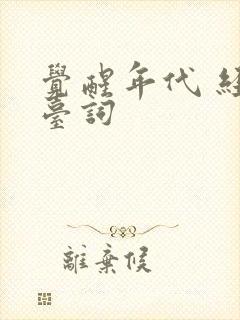 覺醒年代 經
臺詞
離棄候